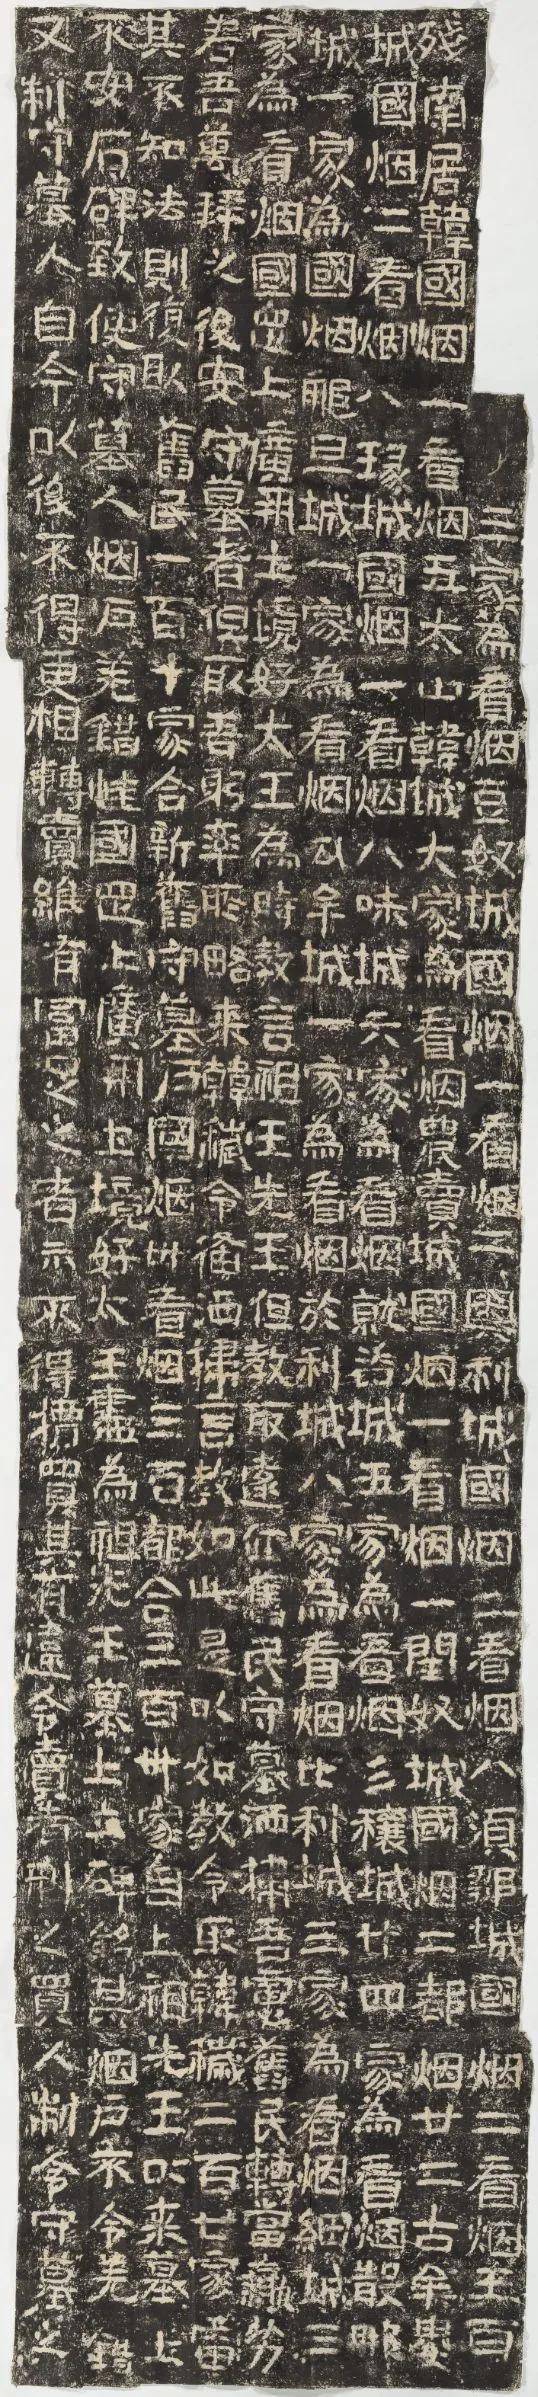 三家為看烟豆奴城國烟一看烟二奧利城國烟二看烟八須鄒城國烟二看烟五百
殘南居韓國烟一看烟五太山韓城六家為看烟農賣城國烟一看烟一閏奴城國烟二都烟廿二古牟婁
城國烟二看烟八瑑城國烟一看烟八味城六家為看烟就咨城五家為看烟彡穰城廿四家為看烟散那
城一家為國烟那旦城一家為看烟勾牟城一家為看烟於利城八家為看烟比利城三家為看烟細城三
家為看烟國罡上廣開土境好太王為時教言祖王先王但教取遠近舊民守墓洒掃吾慮舊民轉當羸劣
若吾萬年之後安守墓者但取吾躬率所略來韓穢令備洒掃言教如此是以如教令取韓穢二百廿家慮
其不知法則復取舊民一百十家合新舊守墓戶國烟卅看烟三百都合三百卅家自上祖先王以來墓上
不安石碑致使守墓人烟戶羌錯唯國罡上廣開土境好太王盡為祖先王墓上立碑銘其烟戶不令羌錯
又制守墓人自今以後不得更相轉賣雖有富足之者亦不得擅買其有違令賣者刑之買人制令守墓之